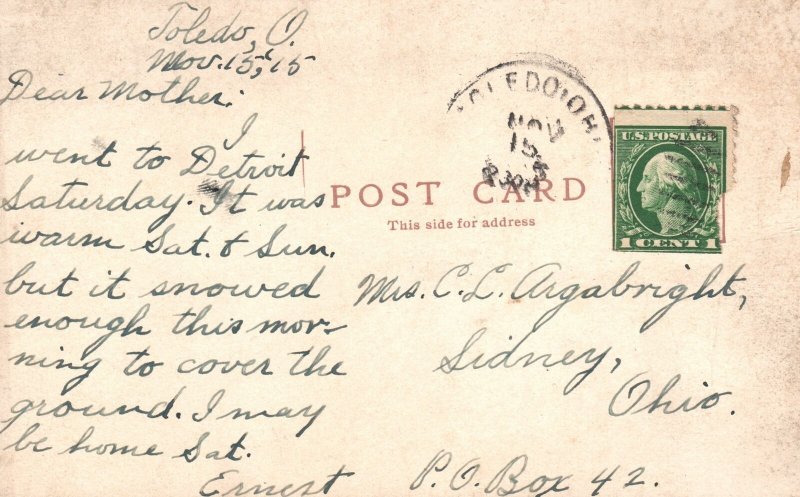 Toledo, O.
Nov. 15, '15
Dear Mother:
I
went to Detroit
Saturday. It was
warm Sat. & Sun.
but it snowed
enough this mor-
ning to cover the
ground. I may
be home Sat.
Ernest
TOLEDO, OH
NOV
15
POST CARD
This side for address
U.S. POSTAGE
1 CENT 1
Mrs. C. L. Argabright,
Sidney,
Ohio.
P.O. Box 42.